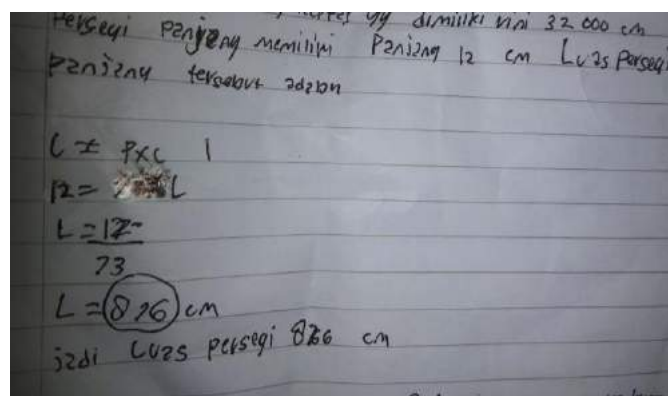 yg dimiliki rini 32 000 cm
Persegi Panjang memiliki Panjang 12 cm Luas Persegi
Panjang tersebut adalah
L = PxL
12 = L
L = 12
73
L = 876 cm
jadi Luas persegi 876 cm